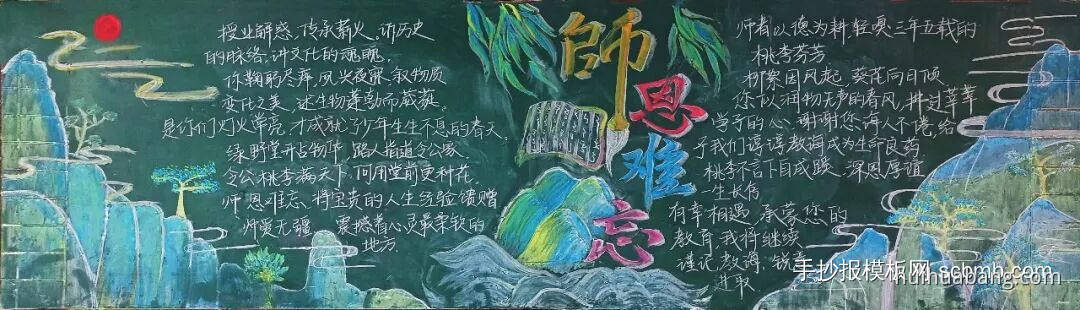 授业解惑,传承薪火,讲历史
的脉络,讲文化的魂魄,
你鞠躬尽瘁,夙兴夜寐,叙物质
变化之美,述生物蓬勃而葳蕤
是你们灯火常亮,才成就了少年生生不息的春天
绿野堂开占物华,路人指道令公家
令公桃李满天下,何用堂前更种花
师恩难忘,将宝贵的人生经验馈赠
师爱无疆 震撼着心灵最柔软的
地方
師恩難忘
师者以德为耕,轻嗅三年五载的
桃李芬芳
柳絮因风起,葵花向日倾
您似润物无声的春风,拂过莘莘
学子的心,谢谢您诲人不倦,给
予我们谆谆教诲成为生命良药
桃李不言下自成蹊,深恩厚谊
一生长存
有幸相遇,承蒙您的
教育,我将继续
谨记教诲,锐意
进取
手抄报模板网 scbmh.com
huihuabang.com